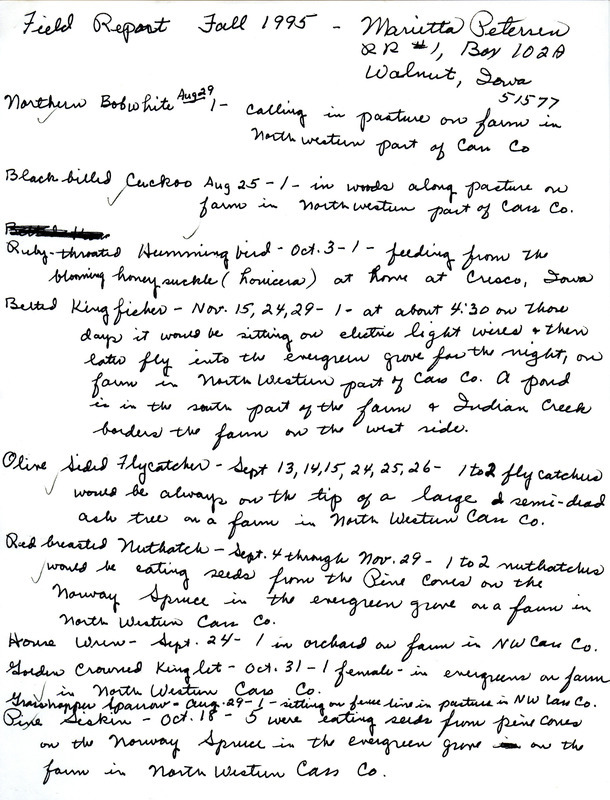 Field Report Fall 1995 - Marietta Petersen
RR #1, Box 102A
Walnut, Iowa
51577
Northern Bobwhite Aug 29 1- calling in pasture on farm in
Northwestern part of Cass Co
Black billed Cuckoo Aug 25 - 1 - in woods along pasture on
farm in Northwestern part of Cass Co.
Ruby-throated Hummingbird - Oct. 3 - 1 - feeding from the
blooming honeysuckle (lonicera) at home at Cresco, Iowa
Belted Kingfisher - Nov. 15, 24, 29 - 1 - at about 4:30 on those
days it would be sitting on electric light wires & then
later fly into the evergreen grove for the night, on
farm in North Western part of Cass Co. A pond
is in the south part of the farm & Indian Creek
borders the farm on the west side.
Olive Sided Flycatcher - Sept 13, 14, 15, 24, 25, 26 - 1 to 2 flycatchers
would be always on the tip of a large semi-dead
ash tree on a farm in North Western Cass Co.
Red breasted Nuthatch - Sept. 4 through Nov. 29 - 1 to 2 nuthatches
would be eating seeds from the Pine cones on the
Norway Spruce in the evergreen grove on a farm in
North Western Cass Co.
House Wren - Sept. 24 - 1 in orchard on farm in NW Cass Co.
Golden Crowned Kinglet - Oct. 31 - 1 female - in evergreens on farm
in North Western Cass Co.
Grasshopper Sparrow - Aug. 29 - 1 - sitting on fence line in pasture in NW Cass Co.
Pine Siskin - Oct. 18 - 5 were eating seeds from pine cones
on the Norway Spruce in the evergreen grove on the
farm in North Western Cass Co.